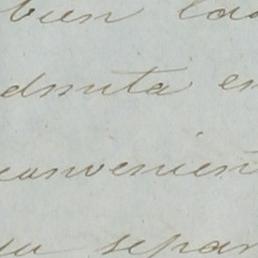 bien
admita en
convenien
su separ